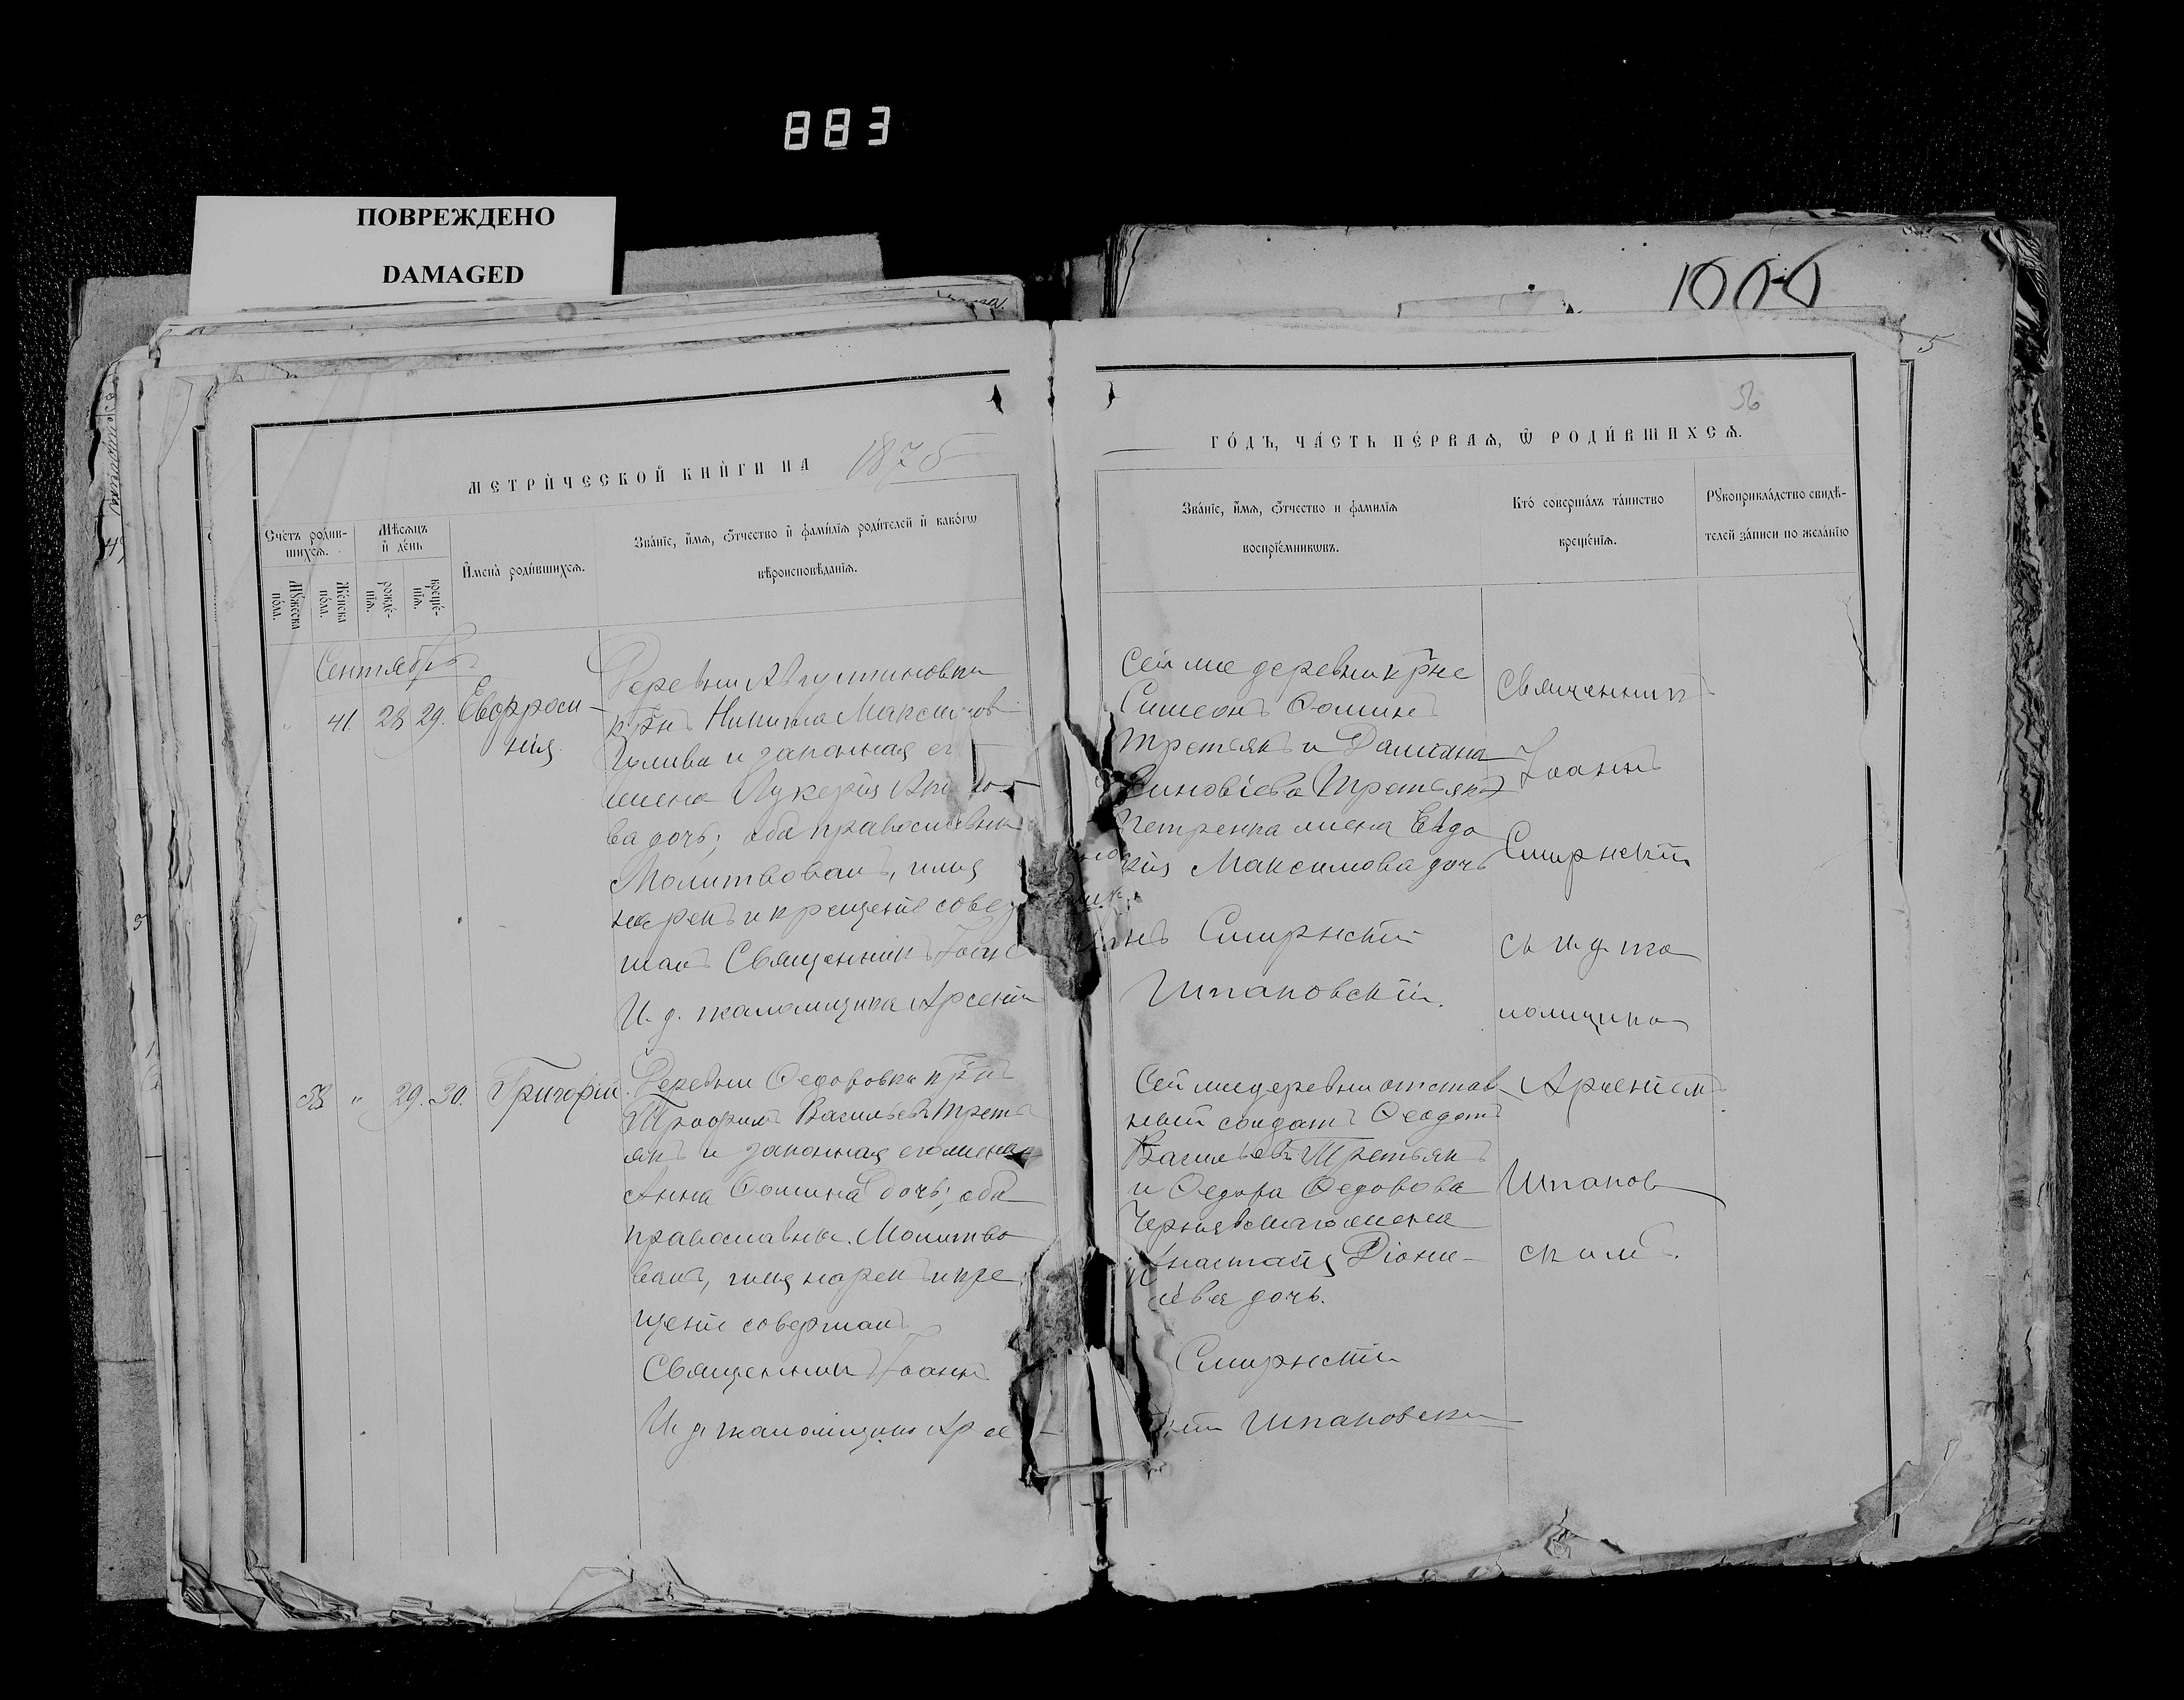 883
ПОВРЕЖДЕНО
DAMAGED
56
МЕТРИ́ЧЕСКОЙ КНИ́ГИ НА 1875
ГО́ДЪ, ЧА́СТЬ ПЕ́РВАѦ, Ѿ РОДИ́ВШИХСѦ.
Сче́тъ роди́в-
шихсѧ.
Мѣ́сѧцъ
и҆ де́нь
Мꙋ́жеска
по́ла.
Же́нска
по́ла.
рожде́-
нїѧ.
креще́-
нїѧ.
И҆мена̀ роди́вшихсѧ.
Зва́нїе, и҆́мѧ, ѻ҆́тчество и҆ фами́лїѧ роди́телей и҆ како́гѡ
вѣроисповѣ́данїѧ.
Зва́нїе, и҆́мѧ, ѻ҆́тчество и фами́лїѧ
воспрїе́мникѡвъ.
Кто̀ соверша́лъ та́инство
креще́нїѧ.
Рꙋкоприкла́дство свидѣ́-
телей за́писи по жела́нїю
Сентябрь
" 41. 28 29. Евфроси-
нія
Деревни Августиновки
крнъ Никита Максимов
и законная ег
жена Лукерія
ва дочь; оба православны
Молитвовалъ, имя
нарекъ и крещеніе совер
шалъ Священникъ Іоан
И. д. пономщика Арсеній
Сей же деревни крне
Симеонъ Ѳоминъ
Третьякъ и Даміана
Зиновіева Третьяка
Петренка жена Евдо
кія Максимова дочь
нъ Смирнскій
Шпаковскій.
Священникъ
Іоаннъ
Смирнскій
съ и. д. по
номщика
Арсеніемъ
Шпаков
скимъ.
58 " 29. 30. Григорій.
Деревни Ѳедоровки крнъ
Трофимъ Васильевъ Треть
якъ и законная его жена
Анна Ѳомина дочь; оба
православны. Молитво
валъ, имя нарекъ и кре
щеніе совершалъ
Священникъ Іоаннъ
И. д. пономщика Арсе
Сей же деревни отстав
ный солдатъ Ѳеодотъ
Васильевъ Третьякъ
и Ѳедора Ѳедорова
Чернявскаго жена
Анастасія Діони-
сіева дочь.
Смирнскій
ній Шпаковскій